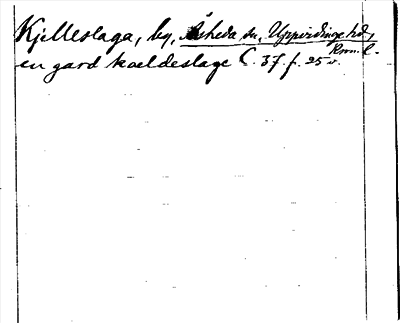 Kjelleslaga, by, Åsheda sn, Uppvidinge hd,
Kron. l.
en gard kaeldeslage C. 37. f. 25 v.